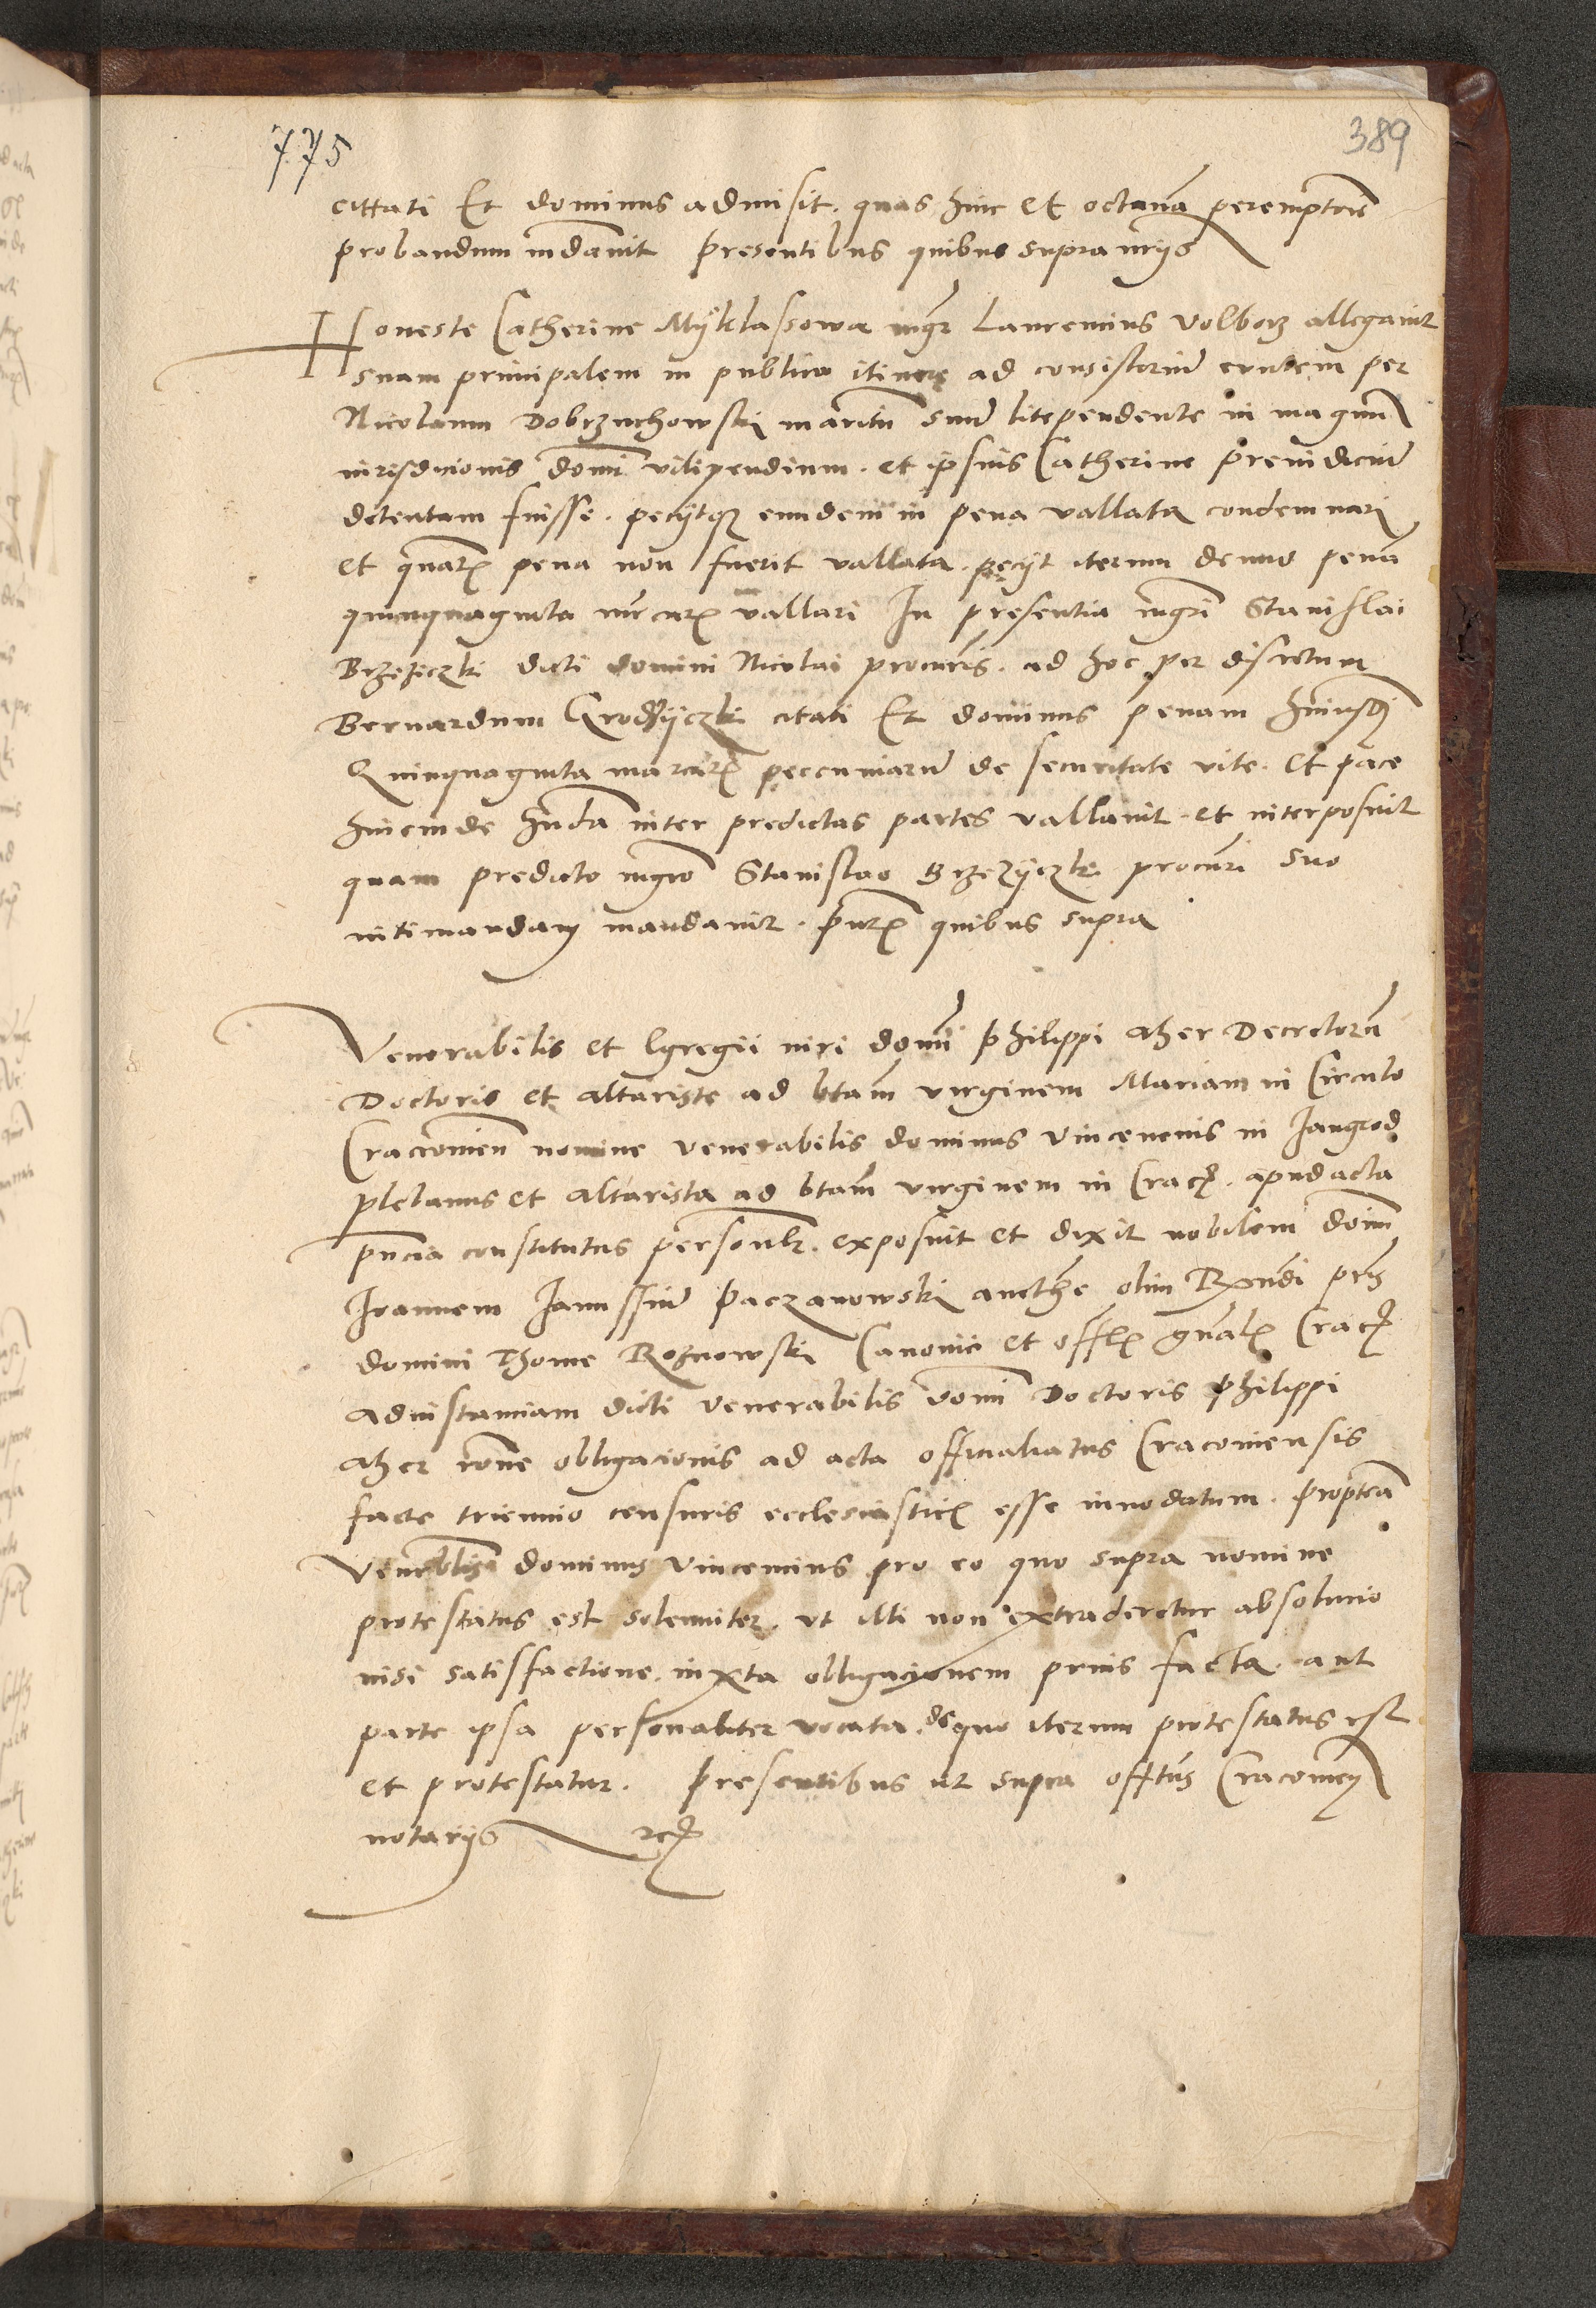 775
389
cittati Et dominus admisit. quas hinc et octavam peremptorie
probandum mdavit Presentibus quibus supra nrijs
Honeste Catherine Myklassowa mgr Laurencius Volborz allegavit
suam principalem in publico itinere ad consistorium eundem per
Nicolaum Dobrzuchowski maritu suum litependente in magnum
iurisdicionis domi vilipendium. et ipsius Catherine preiudicium
detentam fuisse. pecijtque eundem in pena vallata condemnari
et quatenus pena non fuerit vallata. pecijt iterum denuo penam
quinquaginta mrcarum vallari In presentia mgri Stanislai
Brzeziczki dicti domini Nicolai procuris. ad hoc per discretum
Bernardum Grodzyczki citati Et dominus penam huiusmodi
Quinquaginta marcarum peccuniarum de securitate vite. et pace
hincinde hnda inter predictas partes vallavit. et interposuit
quam predicto mgro Stanislao Brzezyczki procuri suo
intimandam mandavit. pntibus quibus supra
Venerabilis et Egregii viri domi Philippi Azer Decretorum
Doctoris et altariste ad btam virginem Mariam in Circulo
Cracovien nomine venerabilis dominus Vincencius in Jangrod
plebanus et altarista ad btam virginem in Crac. apud acta
pncia constitutus personlr. exposuit et dixit nobilem domi
Joannem Janussium Paczanowski aucthe olim Rxndi pris
domini Thome Roznowski Canonici et offlis gnalis Crac
ad instanciam dicti venerabilis domi Doctoris Philippi
Azer rone obligacionis ad acta officialiatus Cracoviensis
facte triennio censuris ecclesiasticis esse innodatum. Propterea
Venerablis dominus Vincencius pro eo quo supra nomine
protestatus est solenniter. ut illi non extraderetur absolucio
nisi satisfactione. iuxta obligacionem prius facta. aut
parte ipsa personaliter vocata. de quo iterum protestatus est
et protestatur. Presentibus ut supra offtus Cracovien
notarijs etc